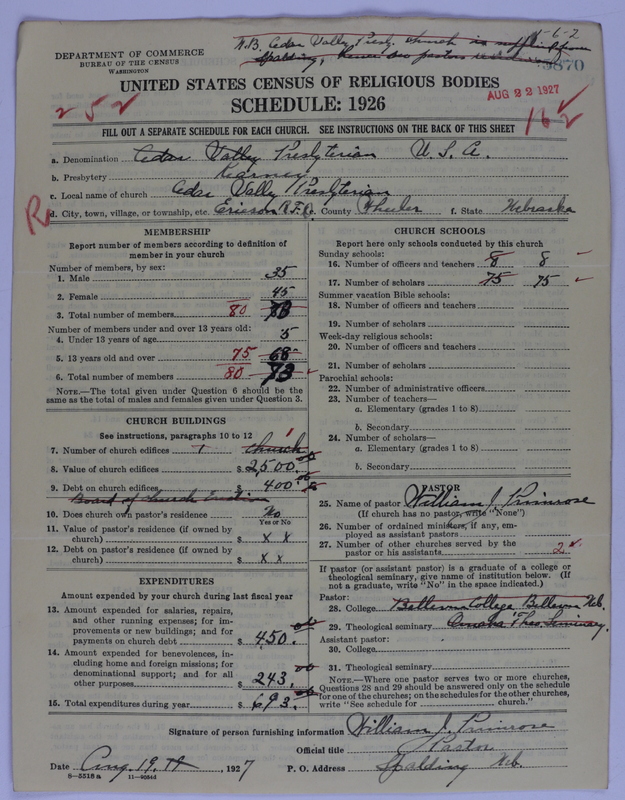 N.B. Cedar Vally Presby. church is supplied from 1-6-2
Spalding, hence
DEPARTMENT OF COMMERCE
BUREAU OF THE CENSUS
WASHINGTON
3870
UNITED STATES CENSUS OF RELIGIOUS BODIES
AUG 22 1927
252
SCHEDULE: 1926
162
FILL OUT A SEPARATE SCHEDULE FOR EACH CHURCH. SEE INSTRUCTIONS ON THE BACK OF THIS SHEET
a. Denomination Cedar Vally Presbyterian U. S. A.
b. Presbytery Kearney
c. Local name of church Cedar Vally Presbyterian
R
d. City, town, village, or township, etc. Ericson R.F.D. e. County Wheeler f. State Nebraska
MEMBERSHIP
Report number of members according to definition of
member in your church
Number of members, by sex:
1. Male 35
2. Female 45
3. Total number of members 80 73
Number of members under and over 13 years old:
4. Under 13 years of age 5
5. 13 years old and over 75 68
6. Total number of members 80 73
NOTE.—The total given under Question 6 should be
same as the total of males and females given under Question 3.
CHURCH BUILDINGS
See instructions, paragraphs 10 to 12
7. Number of church edifices 1 church 1
8. Value of church edifices $ 2,500.00
9. Debt on church edifices $ 400.00
Board of Church Erection
10. Does church own pastor's residence No
Yes or No
11. Value of pastor's residence (if owned by
church) $ x x
12. Debt on pastor's residence (if owned by
church) $ x x
EXPENDITURES
Amount expended by your church during last fiscal year
13. Amount expended for salaries, repairs,
and other running expenses; for im-
provements or new buildings; and for
payments on church debt $ 450.00
14. Amount expended for benevolences, in-
cluding home and foreign missions; for
denominational support; and for all
other purposes $ 243.00
15. Total expenditures during year $ 693.00
CHURCH SCHOOLS
Report here only schools conducted by this church
Sunday schools:
16. Number of officers and teachers 8 8
17. Number of scholars 75 75
Summer vacation Bible schools:
18. Number of officers and teachers
19. Number of scholars
Week-day religious schools:
20. Number of officers and teachers
21. Number of scholars
Parochial schools:
22. Number of administrative officers
23. Number of teachers—
a. Elementary (grades 1 to 8)
b. Secondary
24. Number of scholars—
a. Elementary (grades 1 to 8)
b. Secondary
PASTOR
25. Name of pastor William J. Primrose
(If church has no pastor, write "None")
26. Number of ordained ministers, if any, em-
ployed as assistant pastors
27. Number of other churches served by the
pastor or his assistants 2
If pastor (or assistant pastor) is a graduate of a college or
theological seminary, give name of institution below. (If
not a graduate, write "No" in the space indicated.)
Pastor:
28. College Bellevue College Bellevue Neb.
29. Theological seminary Omaha Theo. Seminary.
Assistant pastor:
30. College
31. Theological seminary
NOTE.—Where one pastor serves two or more churches,
Questions 28 and 29 should be answered only on the schedule
for one of the churches; on the schedules for the other churches,
write "See schedule for church."
Signature of person furnishing information William J. Primrose
Official title Pastor
Date Aug. 19th, 1927 P. O. Address Spalding Neb.
8-5518a 11-9054d